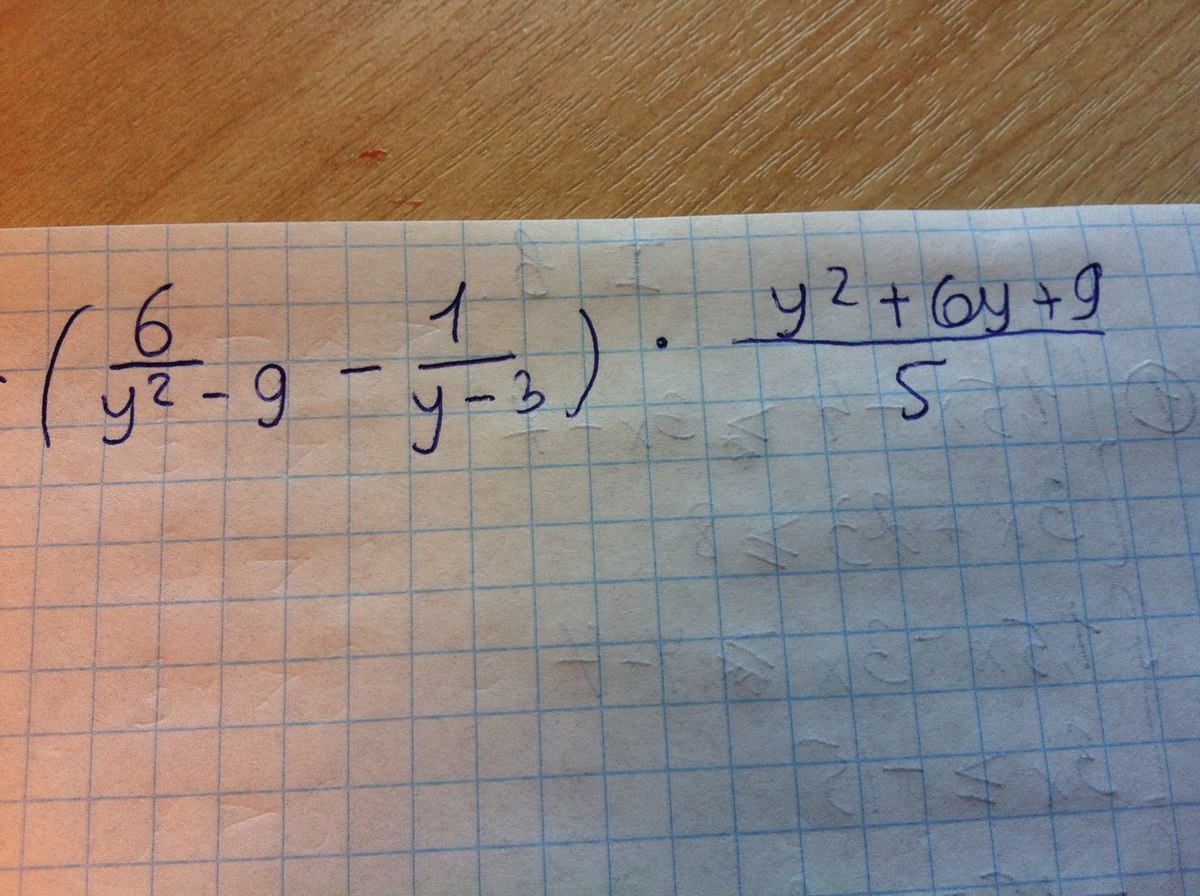 (6/(y² - 9) - 1/(y - 3)) · (y² + 6y + 9)/5